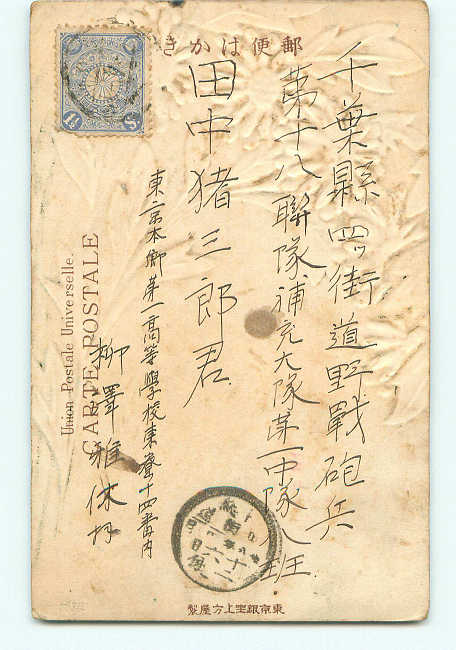 郵便はかき
千葉縣四ツ街道野戰砲兵
第十八聯隊補充大隊第一中隊八班
田中猪三郎君
東京本鄉第一高等學校東寮十四番內
柳澤雅休
Union Postale Universelle.
CARTE POSTALE
1½ Sn
東京銀座上方屋製